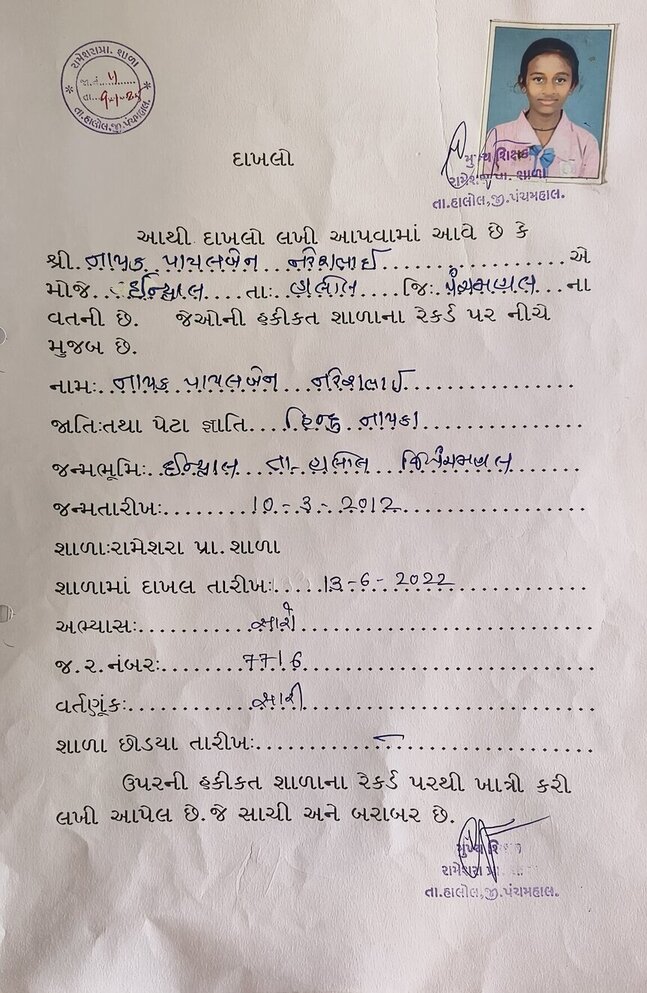 રામેશરા પ્રા. શાળા
જા.નં. ૫
તા.
તા.હાલોલ,જી.પંચમહાલ.
મુખ્ય શિક્ષક
રામેશરા પ્રા. શાળા
તા.હાલોલ,જી.પંચમહાલ.
દાખલો
આથી દાખલો લખી આપવામાં આવે છે કે
શ્રી. નાયક પાયલબેન નરેશભાઈ એ
મોજે. તા: હાલોલ જિ: પંચમહાલ ના
વતની છે. જેઓની હકીકત શાળાના રેકર્ડ પર નીચે
મુજબ છે.
નામ: નાયક પાયલબેન નરેશભાઈ
જાતિ:તથા પેટા જ્ઞાતિ. હિન્દુ નાયકા
જન્મભૂમિ: તા-હાલોલ જિ.પંચમહાલ
જન્મતારીખ: 10-3-2012
શાળા:રામેશરા પ્રા.શાળા
શાળામાં દાખલ તારીખ: 13-6-2022
અભ્યાસ: સારો
જ.ર.નંબર: 7716
વર્તણૂંક: સારી
શાળા છોડયા તારીખ: -
ઉપરની હકીકત શાળાના રેકર્ડ પરથી ખાત્રી કરી
લખી આપેલ છે.જે સાચી અને બરાબર છે.
મુખ્ય શિ
રામેશરા પ્રા.
તા.હાલોલ,જી.પંચમહાલ.